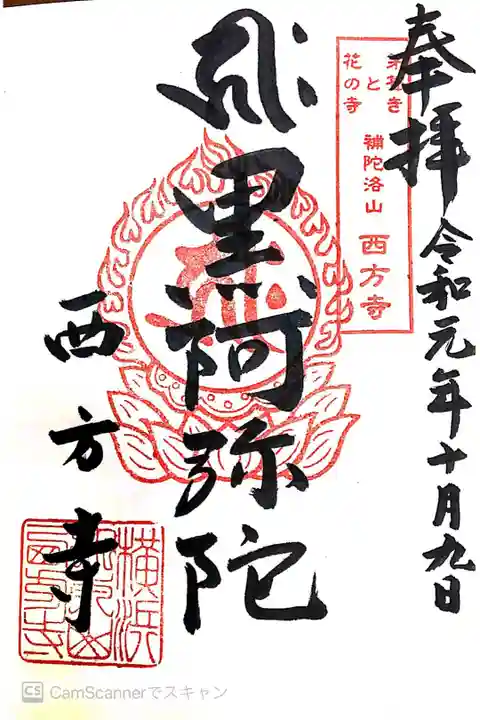 奉拝 令和元年十月九日
花の寺
と
補陀洛山 西方寺
黒阿弥陀
西方寺
横浜
CS CamScannerでスキャン